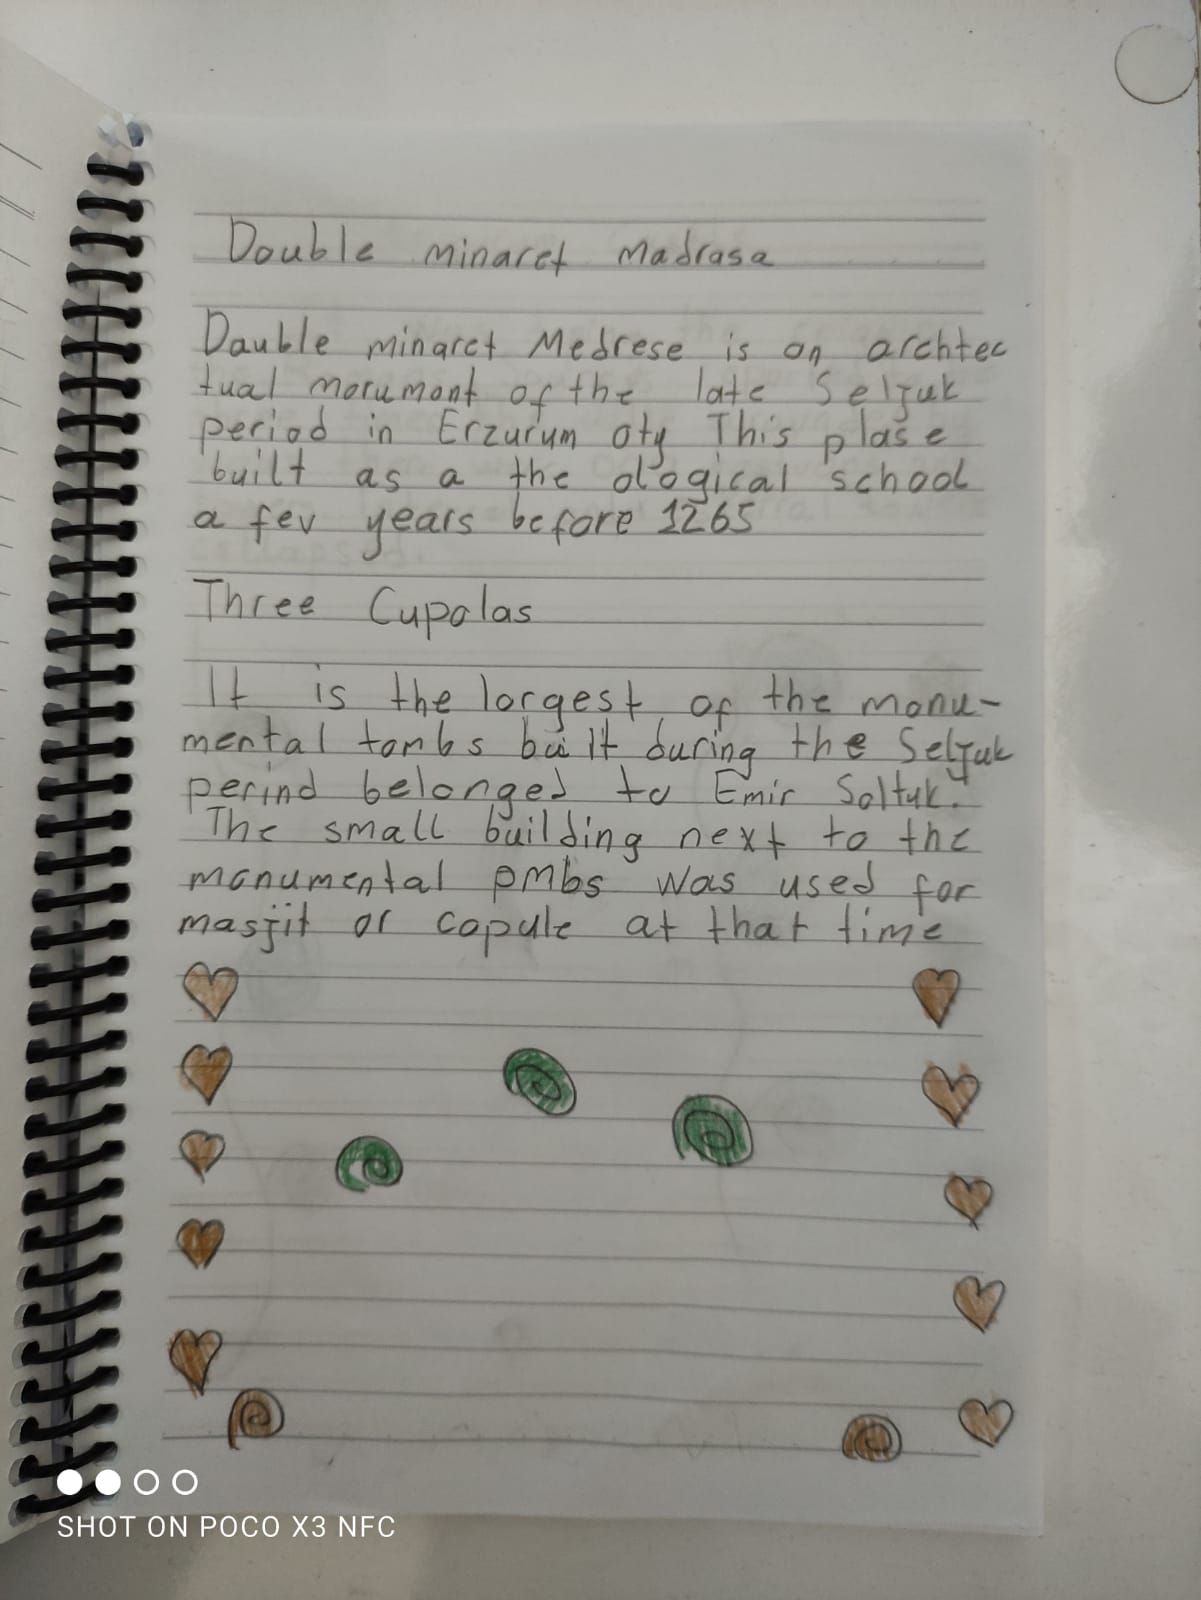 Double minaret Madrasa
Dauble minaret Medrese is an archtec
tual morumont of the late Seljuk
period in Erzurum oty This plase
built as a the ological school
a fev years before 1265
Three Cupolas
It is the largest of the monu-
mental tombs built during the Seljuk
perind belonged to Emir Soltuk.
The small building next to the
monumental pmbs was used for
masjit or copule at that time
SHOT ON POCO X3 NFC